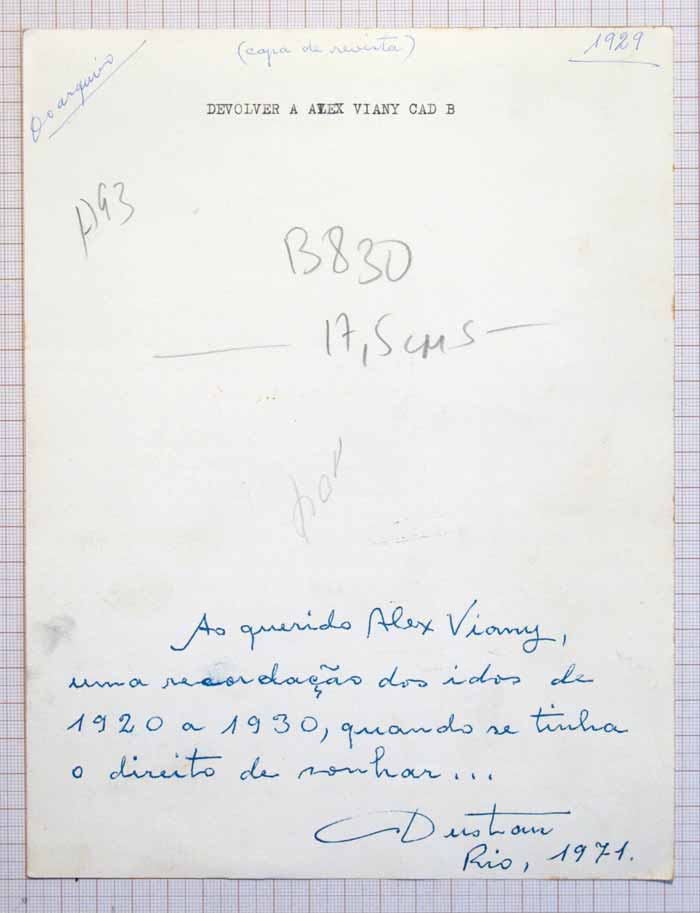 (capa de revista)
1929
Do arquivo
DEVOLVER A ALEX VIANY CAD B
A93
B830
17,5 cms
por
Ao querido Alex Viany,
uma recordação dos idos de
1920 a 1930, quando se tinha
o direito de sonhar...
Dustan
Rio, 1971.